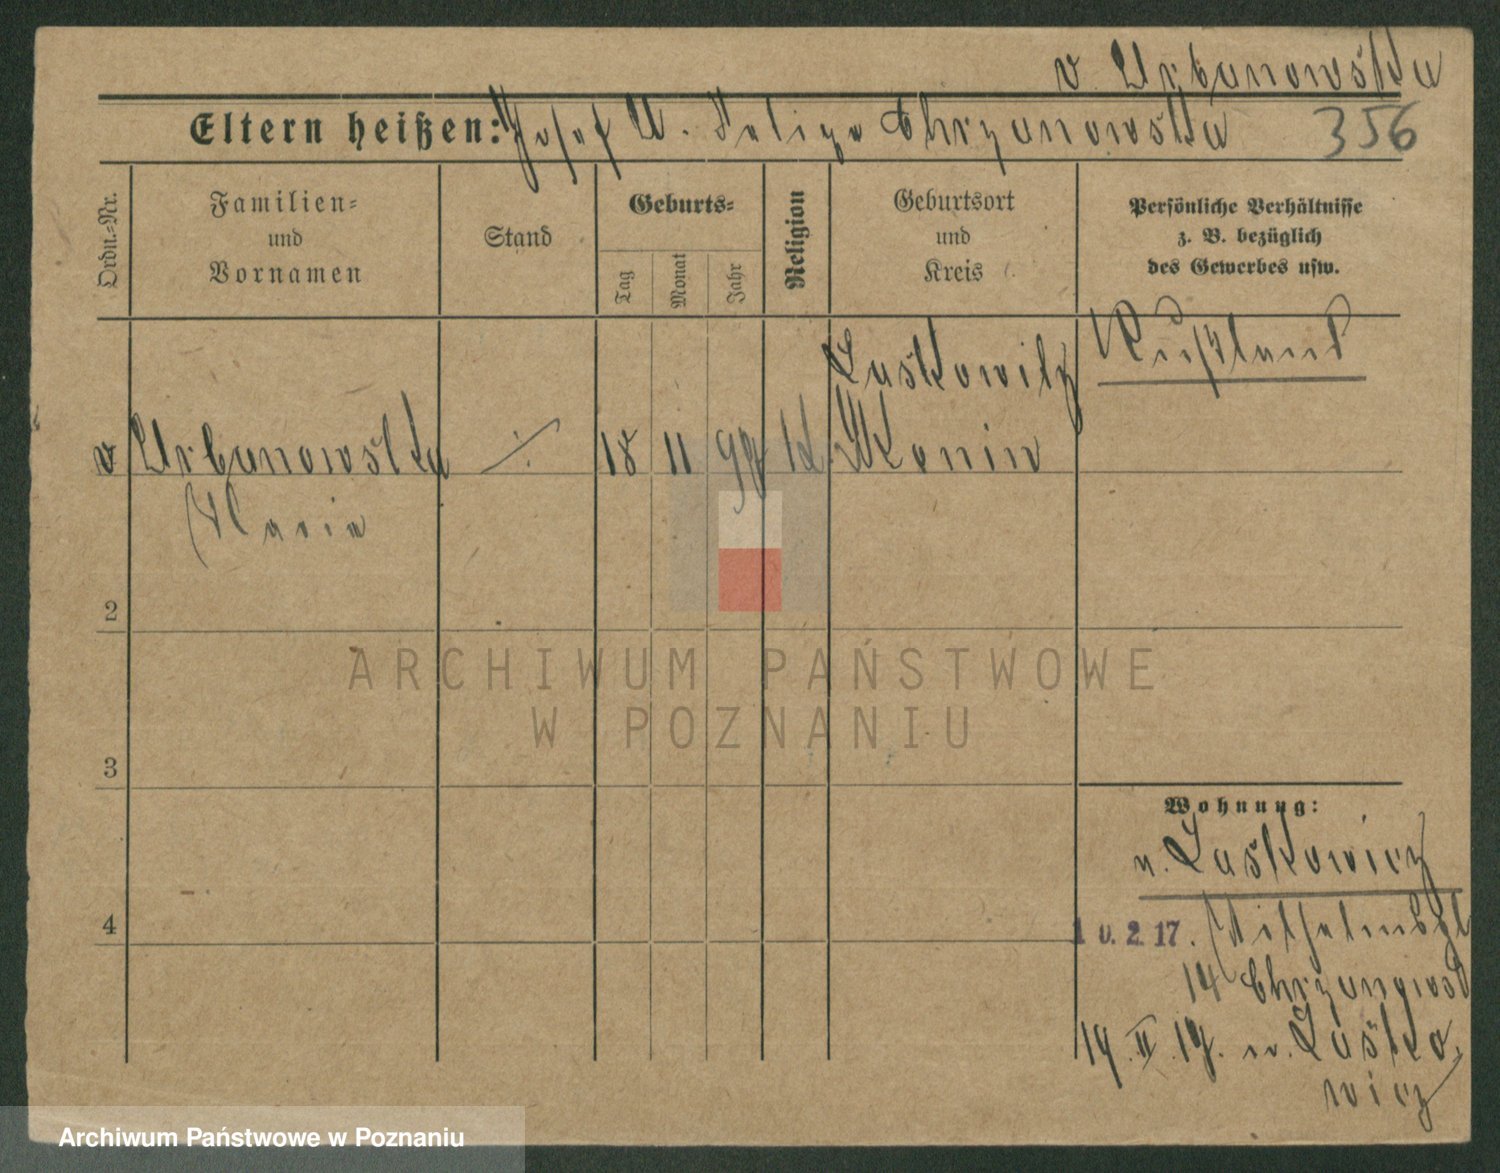 v. Urbanowska
Eltern heißen: Josef u. Feliza Chrzanowska 356
Ordn.-Nr.
Familien-
und
Vornamen
Stand
Geburts-
Tag
Monat
Jahr
Religion
Geburtsort
und
Kreis
Persönliche Verhältnisse
z. B. bezüglich
des Gewerbes usw.
Rußland
Laskowitz
v Urbanowska ./. 18 11 99 k Konin
Maria
2
3
4
Wohnung:
n. Laskowicz
10.2.17. Wilhelmspl
14 Chrzanowsk
19.II.17. n. Lasko
wicz
ARCHIWUM PAŃSTWOWE
W POZNANIU
Archiwum Państwowe w Poznaniu